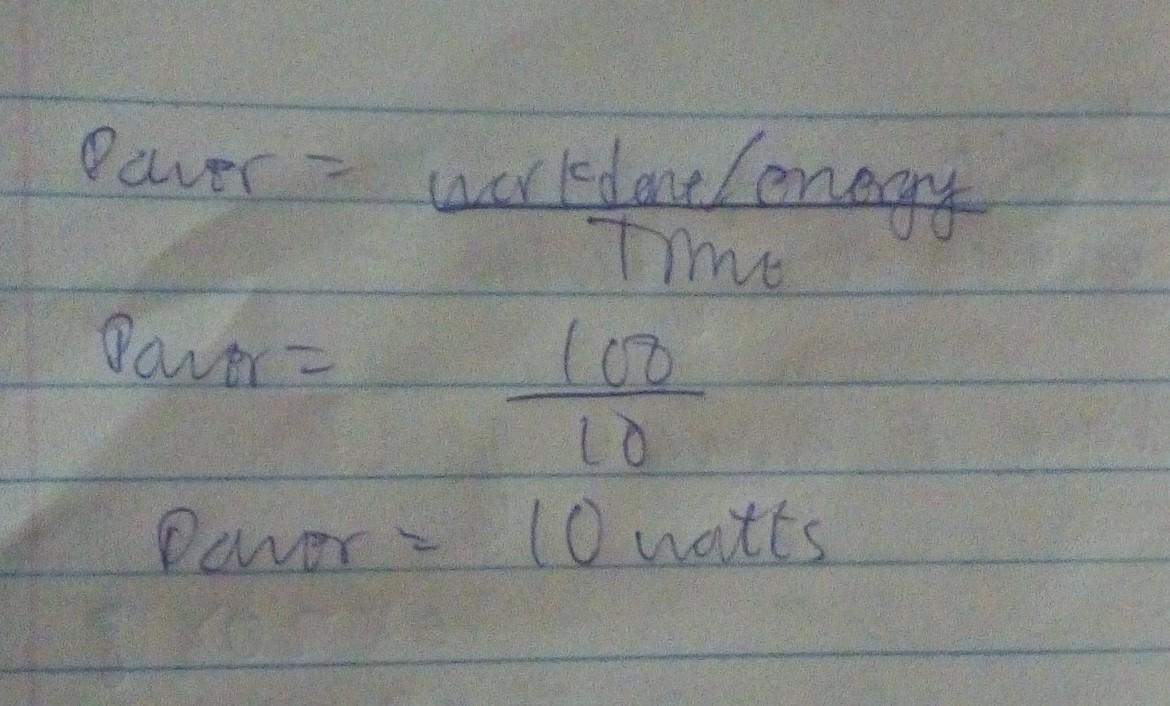 Power = workdone/energy
Time
Power = 100
10
Power = 10 watts